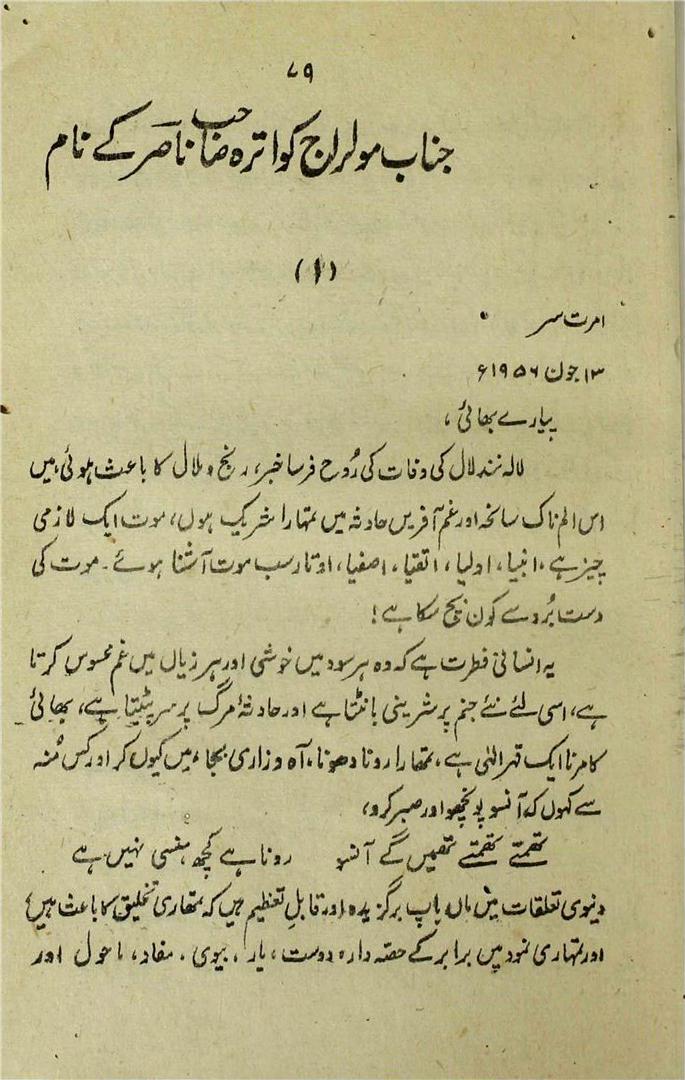 ۷۹
جناب مولراج کواترہ صاحب ناصر کے نام
(۱)
امرت سر
۱۳ جون ۱۹۵۶ء
پیارے بھائی،
لالہ نند لال کی وفات کی رُوح فرسا خبر، رنج و ملال کا باعث ہوئی، میں
اس الم ناک سانحہ اور غم آفریں حادثہ میں تمہارا شریک ہوں، موت ایک لازمی
چیز ہے، انبیا، اولیا، اتقیا، اصفیا، اوتار سب موت آشنا ہوئے۔ موت کی
دست بُرد سے کون بچ سکا ہے!
یہ انسانی فطرت ہے کہ وہ ہر سود میں خوشی اور ہر زیاں میں غم محسوس کرتا
ہے، اسی لئے نئے جنم پر شرینی بانٹتا ہے اور حادثۂ مرگ پر سر پٹیتا ہے، بھائی
کا مرنا ایک قہر الٰہی ہے، تمھارا رونا دھونا، آہ و زاری بجا، میں کیوں کر اور کس مُنہ
سے کہوں کہ آنسو پونچھو اور صبر کرو،
تھمتے تھمتے تھمیں گے آنسو رونا ہے کچھ ہنسی نہیں ہے
دنیوی تعلقات میں ماں باپ برگزیدہ اور قابلِ تعظیم ہیں کہ تمھاری تخلیق کا باعث ہیں،
اور تمہاری نمود میں برابر کے حصّہ دار، دوست، یار، بیوی، مفاد، ماحول اور